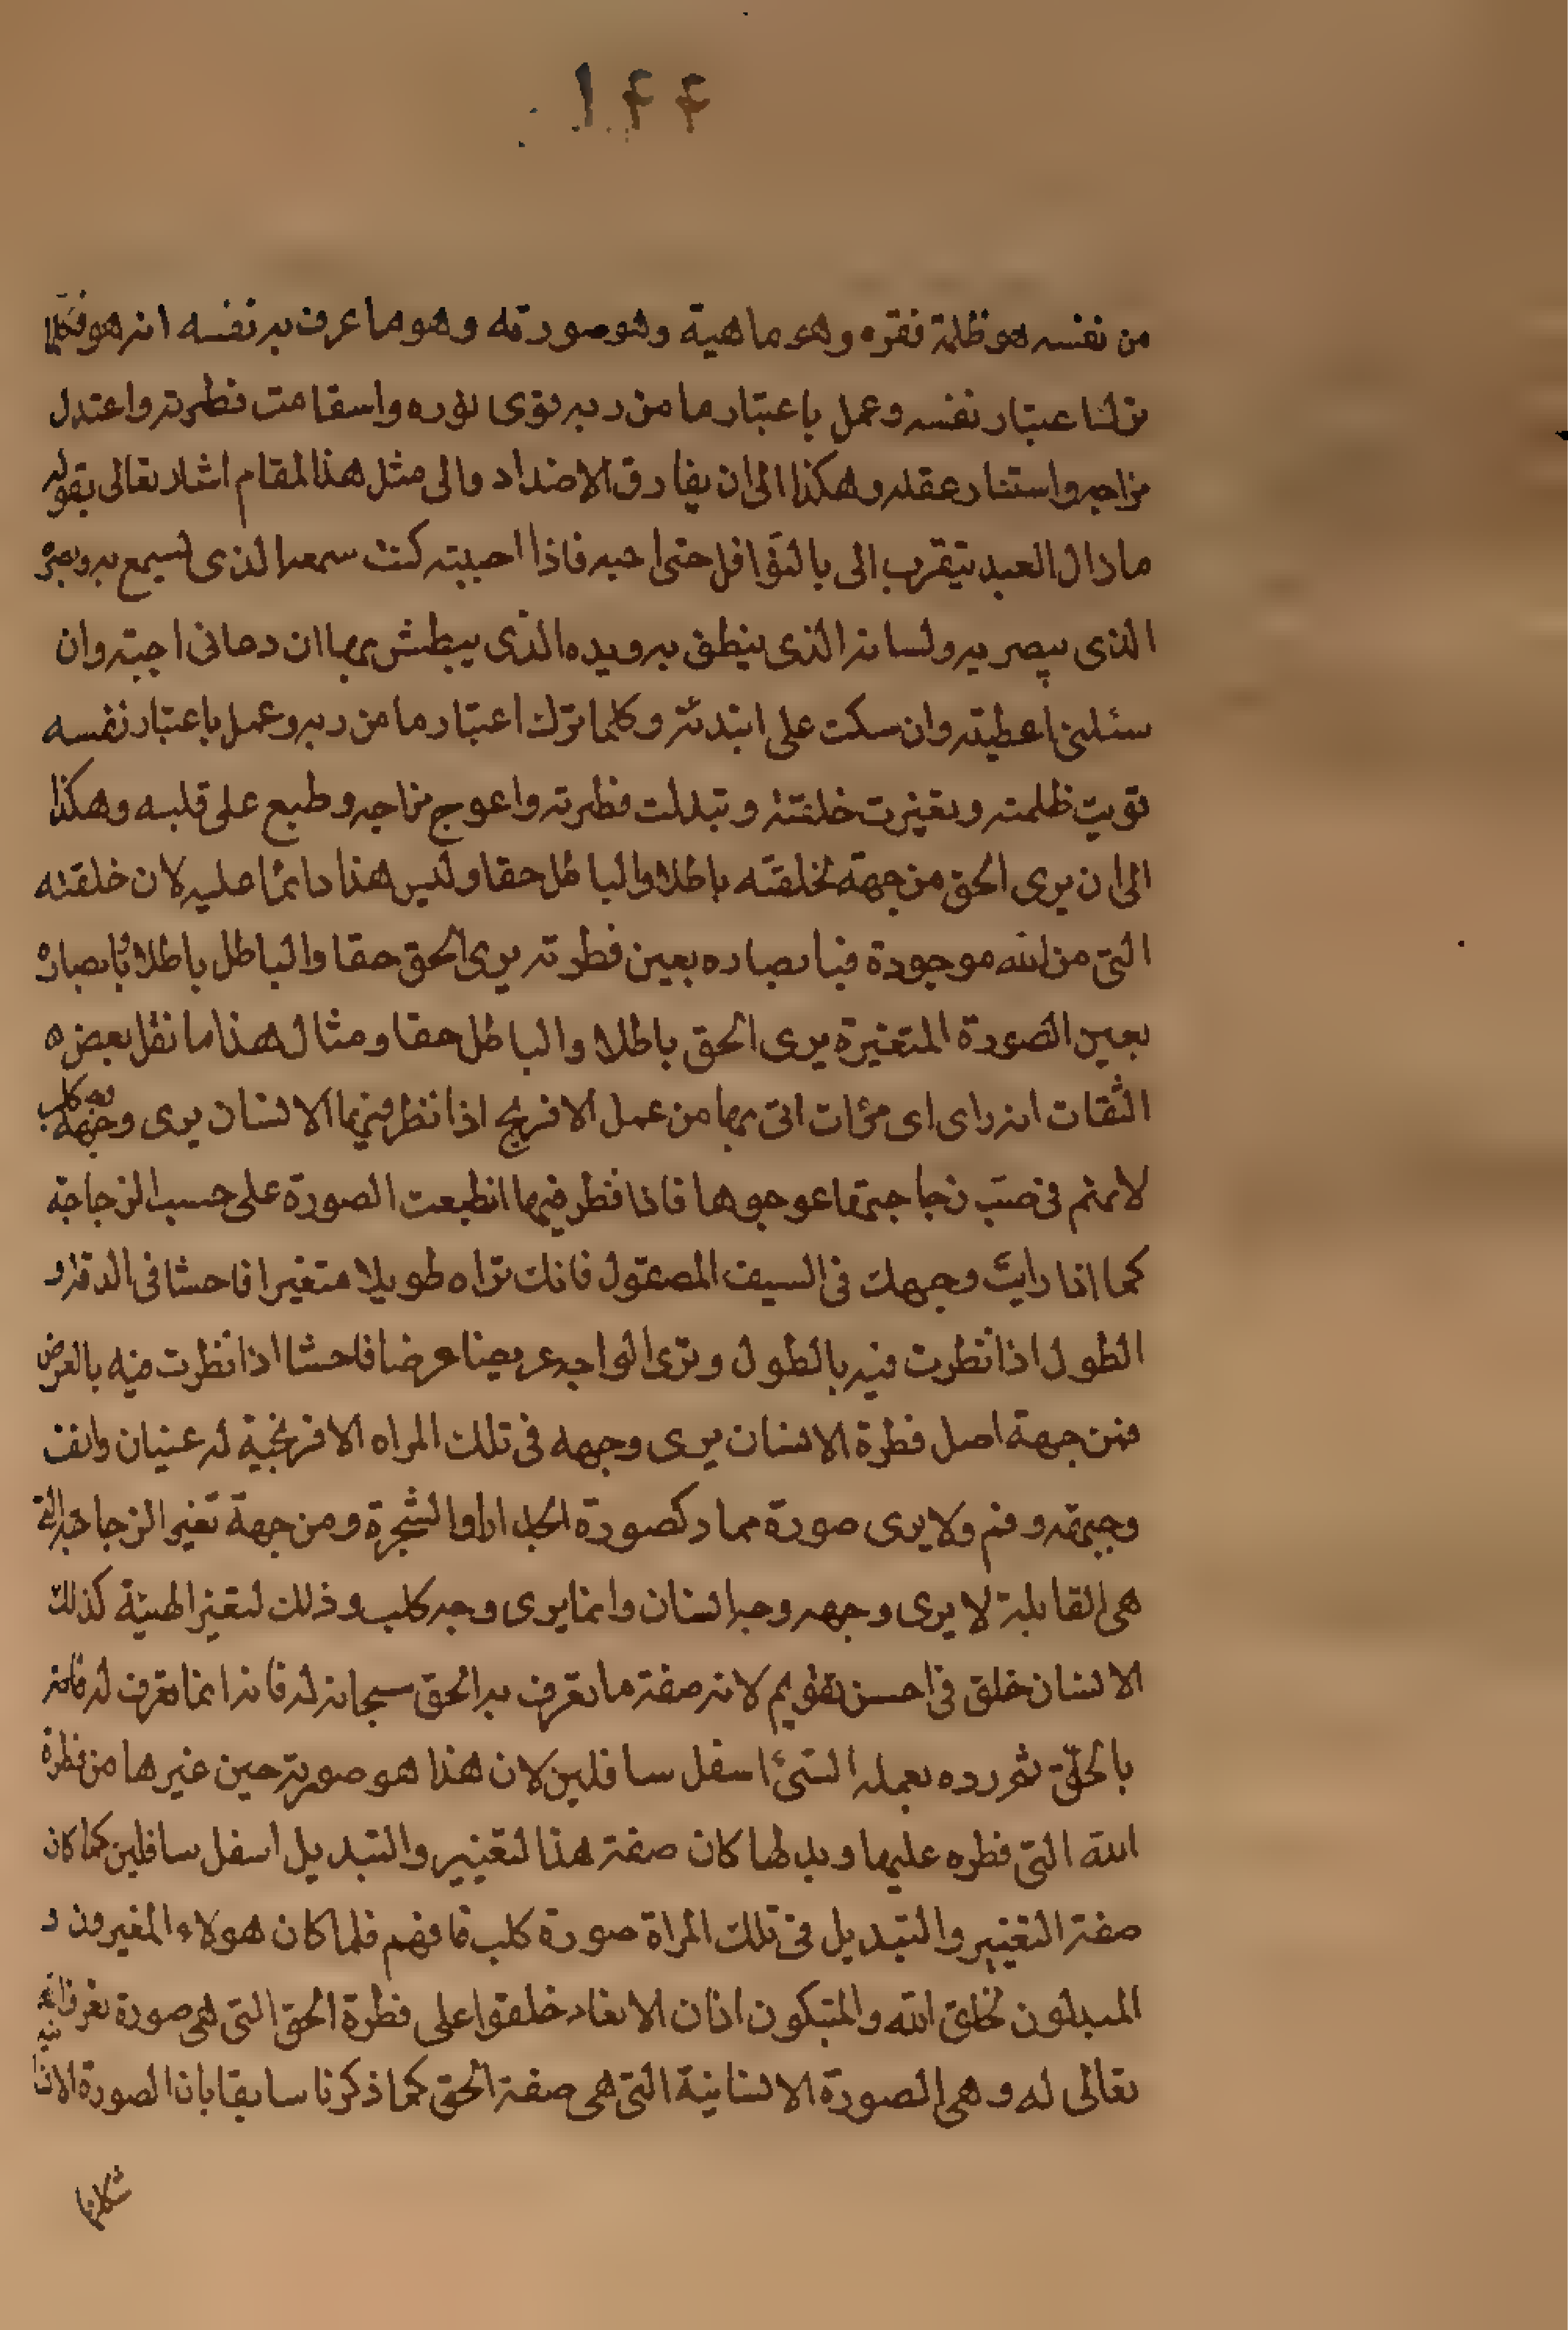 ١۴۴
من نفسه هو ظلمة نقره وهو ماهية وهو صورته وهو ما عرف به نفسه انه هو فكلما
ترك اعتبار نفسه وعمل باعتبار ما من ربه قوى نوره واسقامت فطرته واعتدل
مزاجه واستنار عقله وهكذا الى ان يفارق الاضداد والى مثل هذا المقام اشار تعالى بقوله
مازال العبد يتقرب الى بالنوافل حتى احبه فاذا احببته كنت سمعه الذى يسمع به وبصره
الذى يبصر به ولسانه الذى ينطق به ويده الذى يبطش بها ان دعانى اجبته وان
سئلنى اعطيته وان سكت على ابتدئته وكلما ترك اعتبار ما من ربه وعمل باعتبار نفسه
قويت ظلمته وتغيرت خلقته وتبدلت فطرته واعوج مزاجه وطبع على قلبه وهكذا
الى ان يرى الحق من جهة تخلقته باطلا والباطل حقا وليس هذا دائما عليه لان خلقته
التى من الله موجودة فبابصاره بعين فطرته يرى الحق حقا والباطل باطلا بابصاره
بعين الصورة المتغيرة يرى الحق باطلا والباطل حقا ومثال هذا ما نقل بعض ه
الثقات انه راى اى مرءات اتى بها من عمل الافرنج اذا نظر فيها الانسان يرى وجهه وجه كلب
لانهم فى صب زجاجتها عوجوها فاذا نظر فيها انطبعت الصورة على حسب الزجاجة
كما اذا رايت وجهك فى السيف المصقول فانك تراه طويلا متغيرا فاحشا فى الدقة و
الطول اذا نظرت فيه بالطول وترى الواجه عريضا عرضا فاحشا اذا نظرت فيه بالعرض
فمن جهة اصل فطرة الانسان يرى وجهه فى تلك المراه الافرنجية له عينان وانف
وجبهته وفم ولا يرى صورة كصورة الجدار او الشجرة ومن جهة تغير الزجاجة التى
هى القابلة لا يرى وجهه وجه انسان وانما يرى وجه كلب وذلك لتغير الهيئة كذلك
الانسان خلق فى احسن تقويم لانه صفة ما تعرف به الحق سبحانه له فانه انما تعرف له
بالحق ثم رده بعمله السئ اسفل سافلين لان هذا هو صورته حين غيرها من فطرة
الله التى فطره عليها وبدلها كان صفة هذا لتغيير والتبديل اسفل سافلين كما كان
صفة التغيير والتبديل فى تلك المراة صورة كلب فافهم فلما كان هولاء المغيرون و
المبدلون لخلق الله والمتبكون اذان الانعام خلقوا على فطرة الحق التى هى صورة تعرف الله
تعالى له وهى الصورة الانسانية التى هى صفة الحق كما ذكرنا سابقا بان الصورة الانسانية